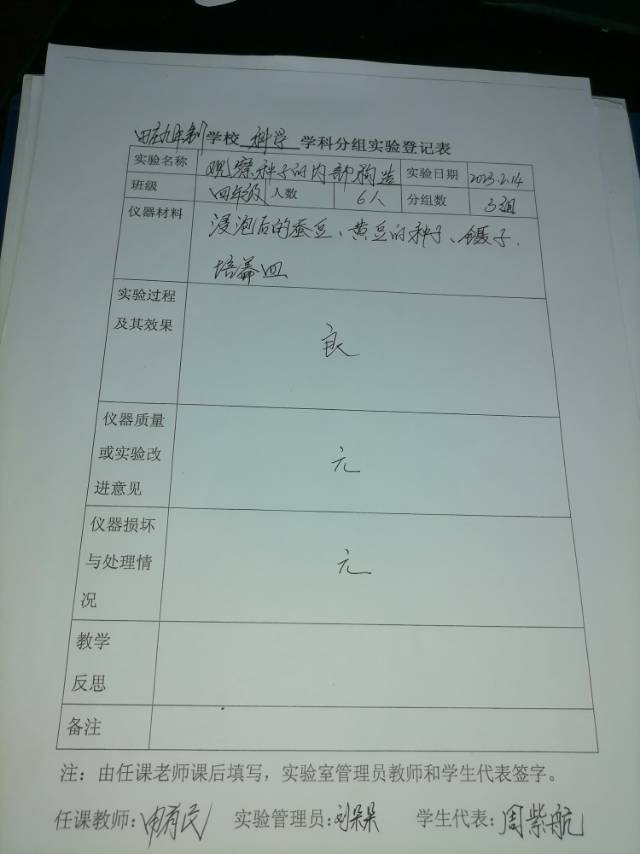 田庄九年制学校 科学 学科分组实验登记表
实验名称 观察种子的内部构造 实验日期 2023.2.14
班级 四年级 人数 6人 分组数 3组
仪器材料 浸泡后的蚕豆、黄豆的种子、镊子、
培养皿
实验过程
及其效果 良
仪器质量
或实验改 无
进意见
仪器损坏
与处理情 无
况
教学
反思
备注
注：由任课老师课后填写，实验室管理员教师和学生代表签字。
任课教师: 申有民 实验管理员: 刘朵朵 学生代表: 周紫航